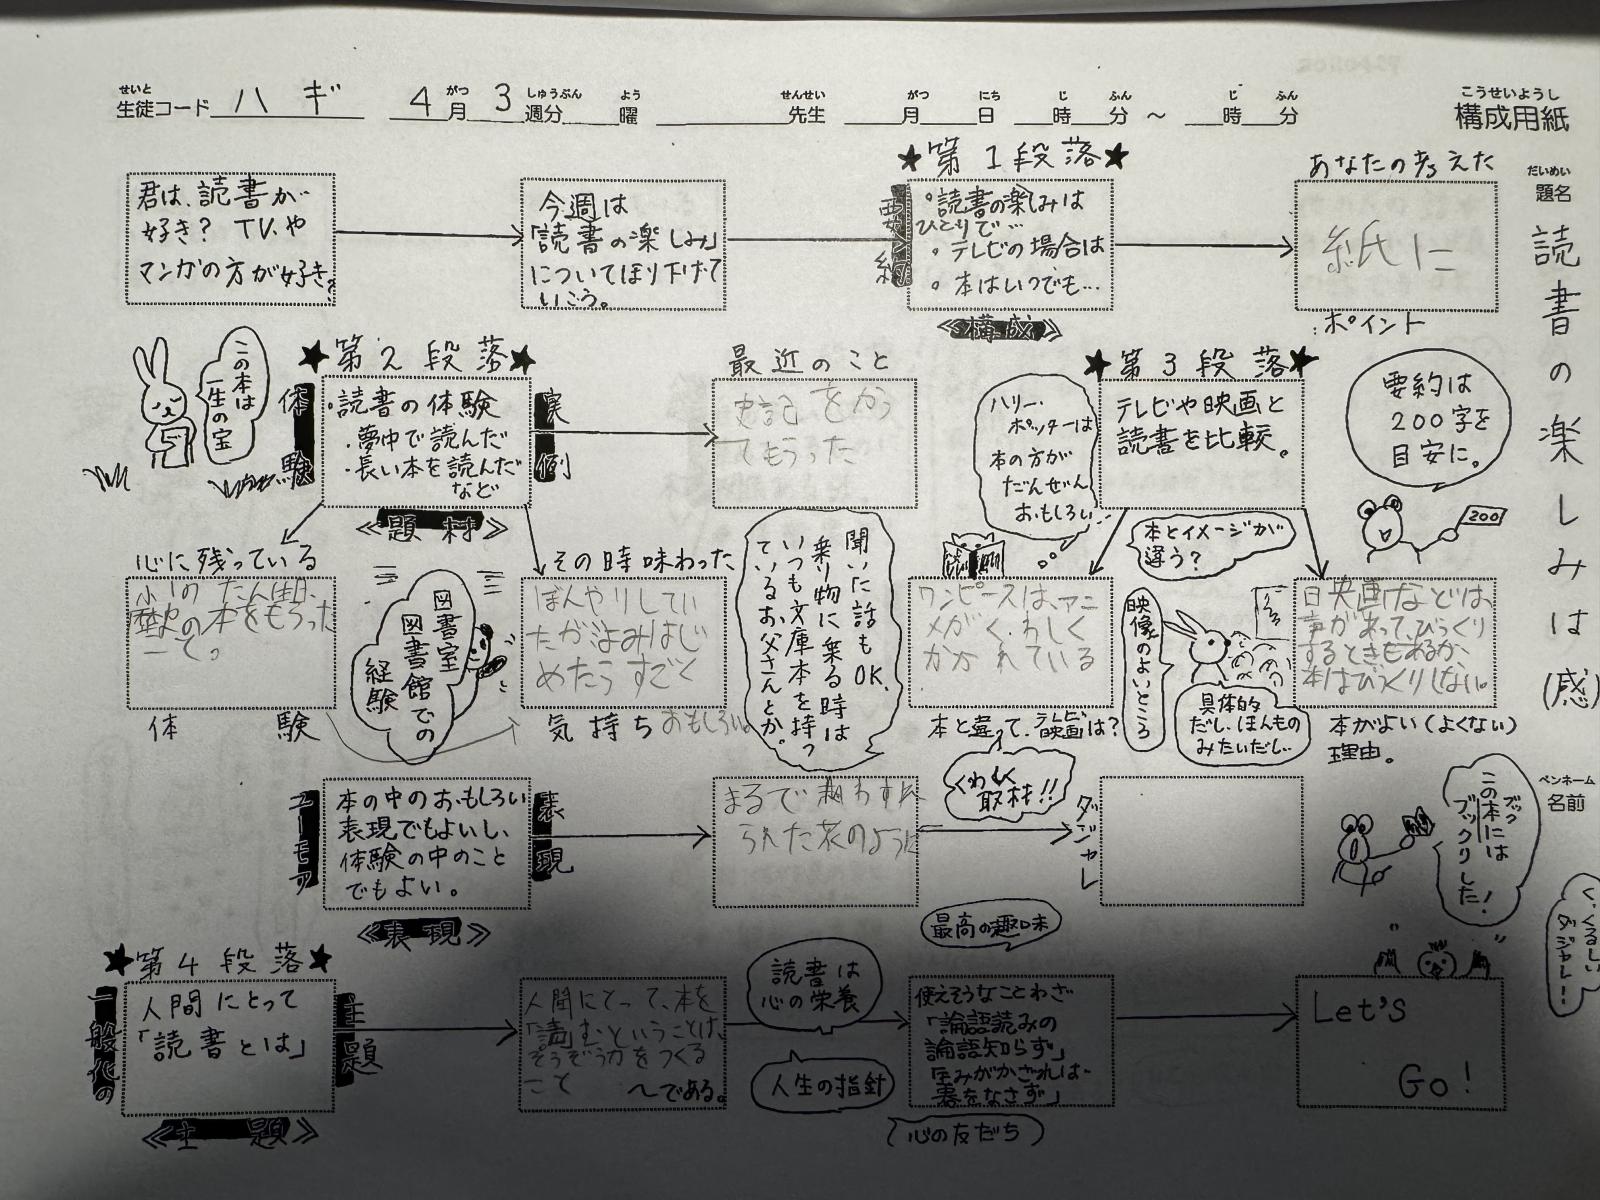 せいと
生徒コード ハギ 4月3週分 曜 先生 月 日 時 分 ～ 時 分
がつ しゅうぶん よう せんせい がつ にち じ ふん じ ふん
こうせいようし
構成用紙
だいめい
題名
読書の楽しみは(感)
ペンネーム
名前
君は、読書が
好き? TVや
マンガの方が好き。
今週は
「読書の楽しみ」
についてほり下げて
いこう。
★第1段落★
要約
・読書の楽しみは
ひとりで…
・テレビの場合は
・本はいつでも…
≪構成≫
あなたの考えた
紙に
:ポイント
この本は
一生の宝
★第2段落★
体験
・読書の体験
・夢中で読んだ
・長い本を読んだ
など
実例
≪題材≫
最近のこと
史記をかっ
てもらった
ハリー・
ポッターは
本の方が
だんぜん
おもしろい…
★第3段落★
テレビや映画と
読書を比較。
要約は
200字を
目安に。
200
心に残っている
たん生日、
歴史の本をもらった
って。
体験
図書室
図書館での
経験
その時味わった
ぼんやりしてい
たがよみはじ
めたらすごく
気持ち おもしろい。
聞いた話もOK.
乗り物に乗る時は
いつも文庫本を持っ
ているお父さんとか。
ワンピースは、アニ
メがくわしく
かかれている
本と違って、テレビ映画は?
本とイメージが
違う?
映像のよいところ
具体的
だし、ほんもの
みたいだし…
映画などは、
声があって、びっくり
するときもあるが、
本はびっくりしない。
本がよい(よくない)
理由。
ユーモア
本の中のおもしろい
表現でもよいし、
体験の中のこと
でもよい。
表現
≪表現≫
まるで
られた花のように
くわしく
取材!!
ダジャレ
ブック
この本には
ブックリした!
くっくるしい
ダジャレ!!
★第4段落★
一般化の
人間にとって
「読書とは」
主題
≪主題≫
人間にとって、本を
「読」むということは、
そうぞう力をつくる
こと
～である。
読書は
心の栄養
最高の趣味
人生の指針
心の友だち
使えそうなことわざ
「論語読みの
論語知らず」
「玉みがかざれば
器をなさず」
Let's
Go!